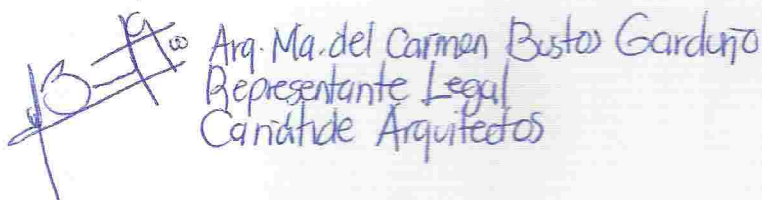 Arq. Ma. del Carmen Bustos Garduño
Representante Legal
Cariátide Arquitectos